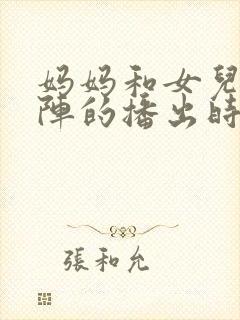 妈妈和女兒
陣的播出時
張和允